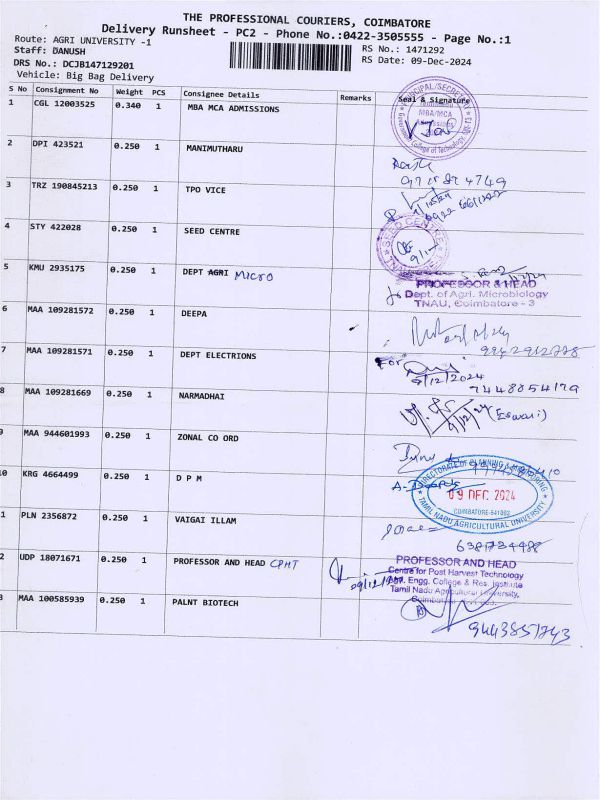 THE PROFESSIONAL COURIERS, COIMBATORE
Delivery Runsheet - PC2 - Phone No.:0422-3505555 - Page No.:1
Route: AGRI UNIVERSITY -1
RS No.: 1471292
Staff: DANUSH
RS Date: 09-Dec-2024
DRS No.: DCJB147129201
Vehicle: Big Bag Delivery
S No Consignment No Weight PCS Consignee Details Remarks Seal & Signature
1 CGL 12003525 0.340 1 MBA MCA ADMISSIONS
MBA/MCA
2 DPI 423521 0.250 1 MANIMUTHARU
3 TRZ 190845213 0.250 1 TPO VICE
4 STY 422028 0.250 1 SEED CENTRE
SEED CENTRE
5 KMU 2935175 0.250 1 DEPT AGRI MICRO
PROFESSOR & HEAD
Dept. of Agri. Microbiology
TNAU, Coimbatore - 3
6 MAA 109281572 0.250 1 DEEPA
7 MAA 109281571 0.250 1 DEPT ELECTRIONS
For
9/12/2024
7448854179
8 MAA 109281669 0.250 1 NARMADHAI
9/12/24 (Eswari)
9 MAA 944601993 0.250 1 ZONAL CO ORD
10 KRG 4664499 0.250 1 D P M
09 DEC 2024
COIMBATORE-641003
TAMIL NADU AGRICULTURAL UNIVERSITY
1 PLN 2356872 0.250 1 VAIGAI ILLAM
2 UDP 18071671 0.250 1 PROFESSOR AND HEAD CPHT
PROFESSOR AND HEAD
Centre for Post Harvest Technology
Agri. Engg. College & Res. Institute
Tamil Nadu Agricultural University,
3 MAA 100585939 0.250 1 PALNT BIOTECH
9443851743